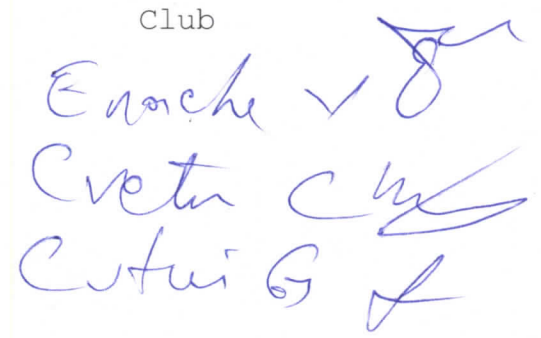 Club
Enache V
Cvetu C
Cutui G